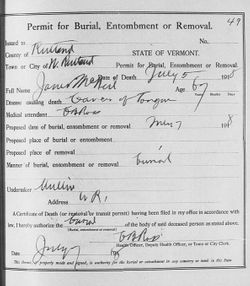 49
Permit for Burial, Entombment or Removal.
Issued to No.
County of Rutland STATE OF VERMONT.
Town or City of W. Rutland Permit for Burial, Entombment or Removal.
Date of Death July 5 1918
Full Name James Age 67
Years Months Days
Disease causing death Cancer of Tongue
Medical attendant
Proposed date of burial, entombment or removal 7 1918
Proposed place of removal
Proposed place of burial
Manner of burial, entombment or removal burial
Undertaker
Address W R.
A Certificate of Death (or removal or transit permit) having been filed in my office in accordance
with law, I hereby authorize the burial of body of said deceased person as stated above.
(Burial, entombment or removal)
Health Officer, Deputy Health Officer, or Town or City Clerk.
Date July 7 191
This permit, properly made and signed, is authority for burial or entombment in any cemetery or tomb in this State